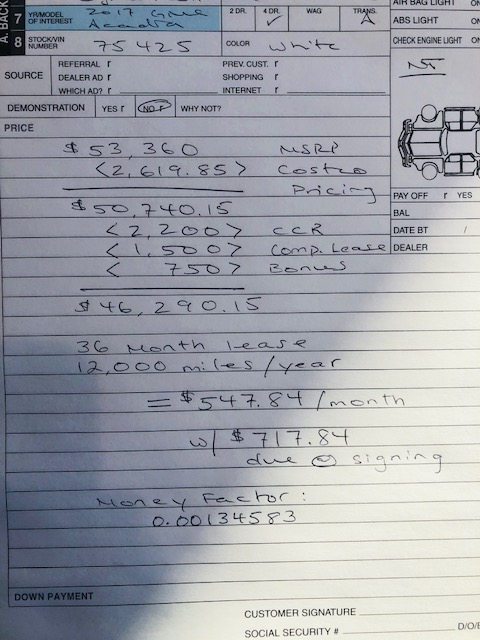 AIR BAG LIGHT ON
A. BACK 7 YR/MODEL OF INTEREST 2017 GMC Acadia 2 DR. 4 DR. ✓ WAG TRANS. A
ABS LIGHT ON
8 STOCK/VIN NUMBER 75425 COLOR White
CHECK ENGINE LIGHT ON
NT
SOURCE REFERRAL r PREV. CUST. r
DEALER AD r SHOPPING r
WHICH AD? r INTERNET r
DEMONSTRATION YES r NO r WHY NOT?
PRICE
$53,360 MSRP
<2,619.85> Costco Pricing
$50,740.15
PAY OFF r YES
<2,200> CCR
BAL
<1,500> Comp. Lease
DATE BT /
< 750> Bonus
DEALER
$46,290.15
36 Month lease
12,000 miles/year
= $547.84/month
w/ $717.84
due @ signing
Money Factor:
0.00134583
DOWN PAYMENT
CUSTOMER SIGNATURE
SOCIAL SECURITY # D/O/B